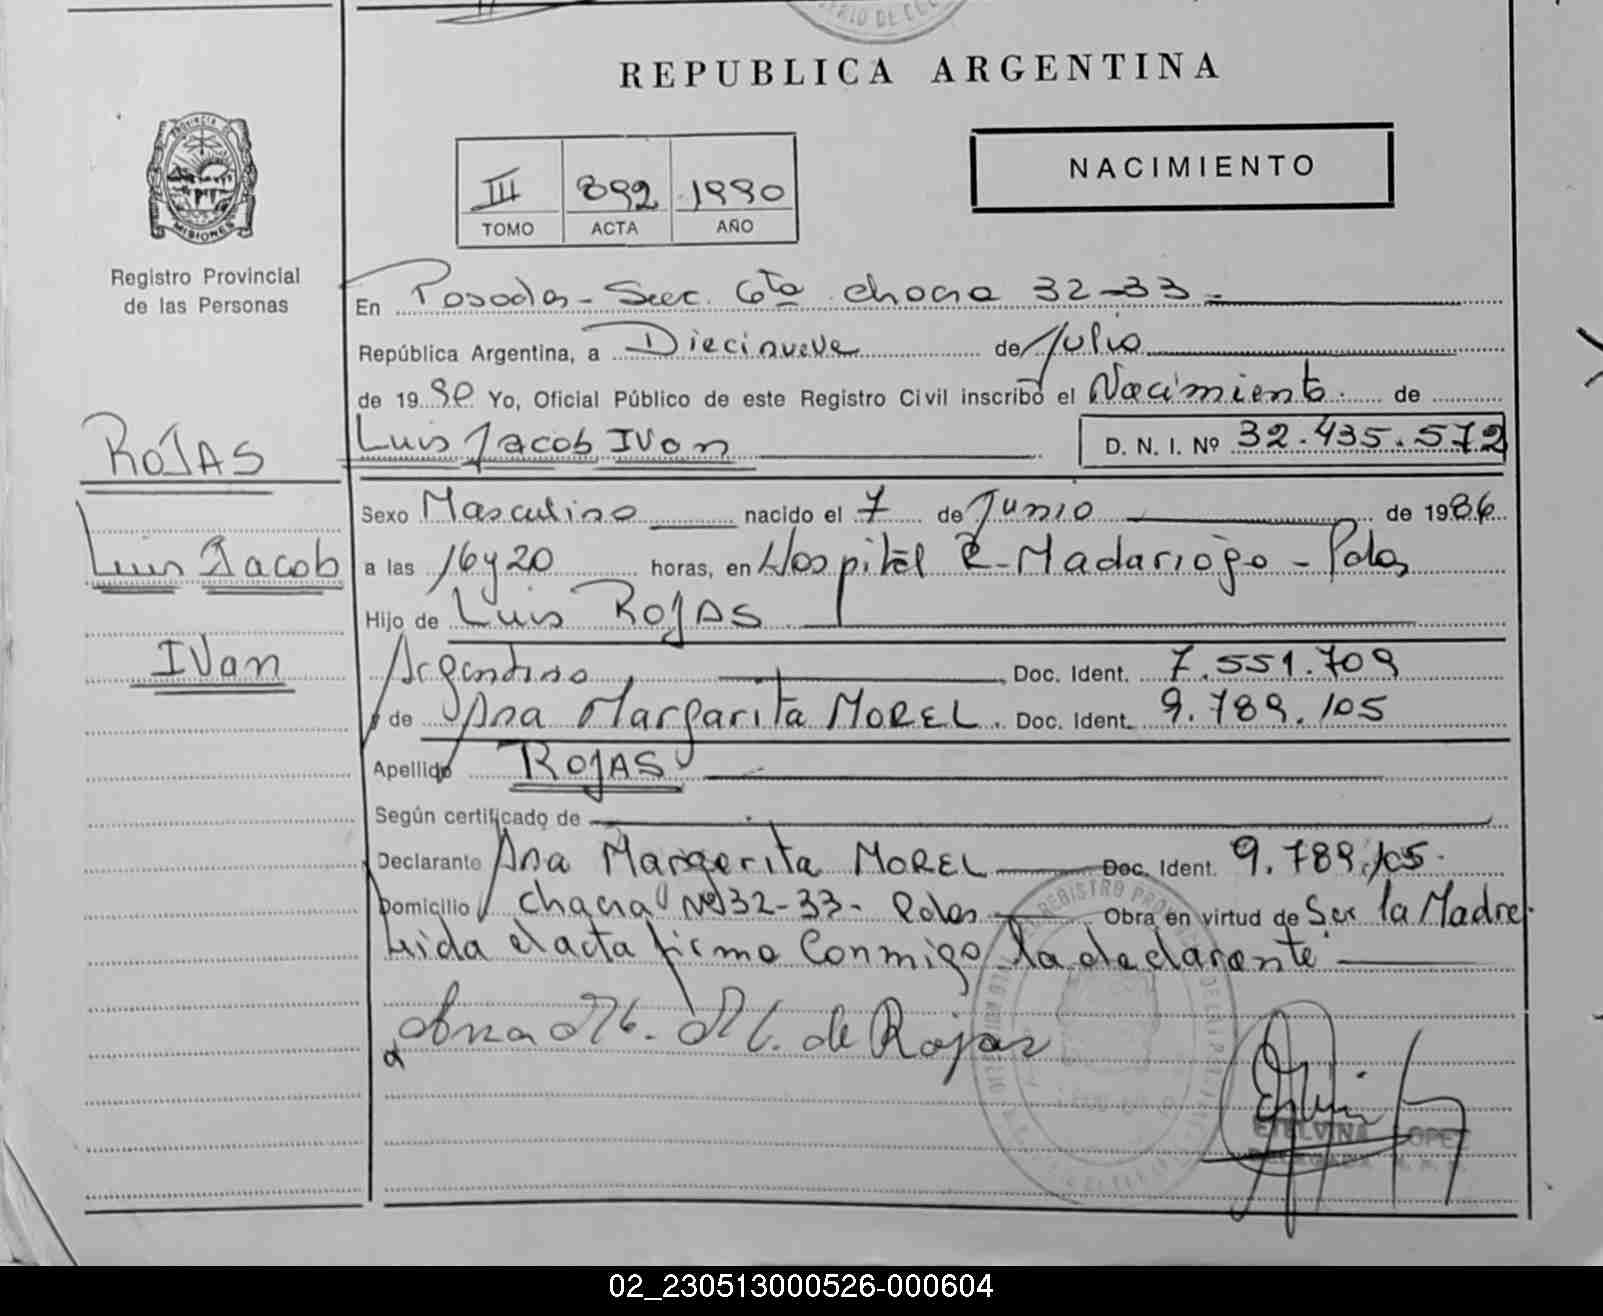 REPUBLICA ARGENTINA
PROVINCIA D
MISIONES
Registro Provincial
de las Personas
III 892 1990
TOMO ACTA AÑO
NACIMIENTO
En Posadas - Secc. 6ta chacra 32-33 -
República Argentina, a Diecinueve de Julio
de 1990 Yo, Oficial Público de este Registro Civil inscribo el Nacimiento de
Luis Jacob Ivan D. N. I. Nº 32.435.572
ROJAS
Luis Jacob
IVan
Sexo Masculino nacido el 7 de Junio de 1986
a las 16 y 20 horas, en Hospital R. Madariaga - Pdas
Hijo de Luis ROJAS
Argentino Doc. Ident. 7.551.709
y de Ana Margarita MOREL. Doc. Ident. 9.789.105
Apellido ROJAS
Según certificado de
Declarante Ana Margarita MOREL Doc. Ident. 9.789.105.
Domicilio chacra Nº 32-33 - Pdas Obra en virtud de Ser la Madre.
Leida el acta firma Conmigo la declarante
Ana M. M. de Rojas
ETELVINA LOPEZ
02_230513000526-000604